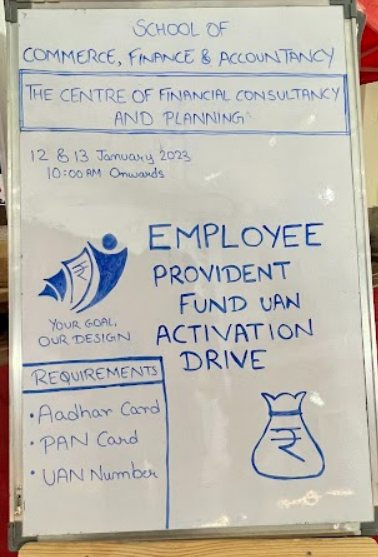 SCHOOL OF
COMMERCE, FINANCE & ACCOUNTANCY
THE CENTRE OF FINANCIAL CONSULTANCY
AND PLANNING
12 & 13 January 2023
10:00 AM Onwards
EMPLOYEE
PROVIDENT
FUND UAN
ACTIVATION
DRIVE
₹
YOUR GOAL,
OUR DESIGN
REQUIREMENTS
• Aadhar Card
• PAN Card
• UAN Number
₹